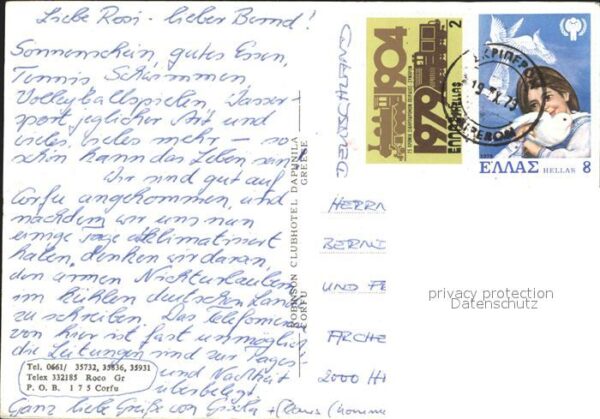 Liebe Rosi - lieber Bernd!
Sonnenschein, gutes Essen,
Tennis, Schwimmen,
Volleyballspielen, Wasser
sport jeglicher Art und
vieles, vieles mehr - so
schön kann das Leben sein
Wir sind gut auf
Corfu angekommen, und
nachdem wir uns nun
einige Tage akklimatisiert
haben, denken wir daran,
den armen Nichturlaubern
im kühlen deutschen Lande
zu schreiben. Das Telefonieren
von hier ist fast unmöglich
die Leitungen sind zur Tages
und Nachtzeit
überbelegt
Ganz liebe Grüße von Gisela + Claus
Tel. 0661/ 35732, 35836, 35931
Telex 332185 Roco Gr
P. O. B. 1 7 5 Corfu
ROBINSON CLUBHOTEL DAPHNILA
CORFU GREECE
DEUTSCHLAND
1904
1979
2
ΕΛΛΑΣ HELLAS
19 79
ΕΛΛΑΣ HELLAS 8
HERRN
BERND
UND
2000 HH
privacy protection
Datenschutz